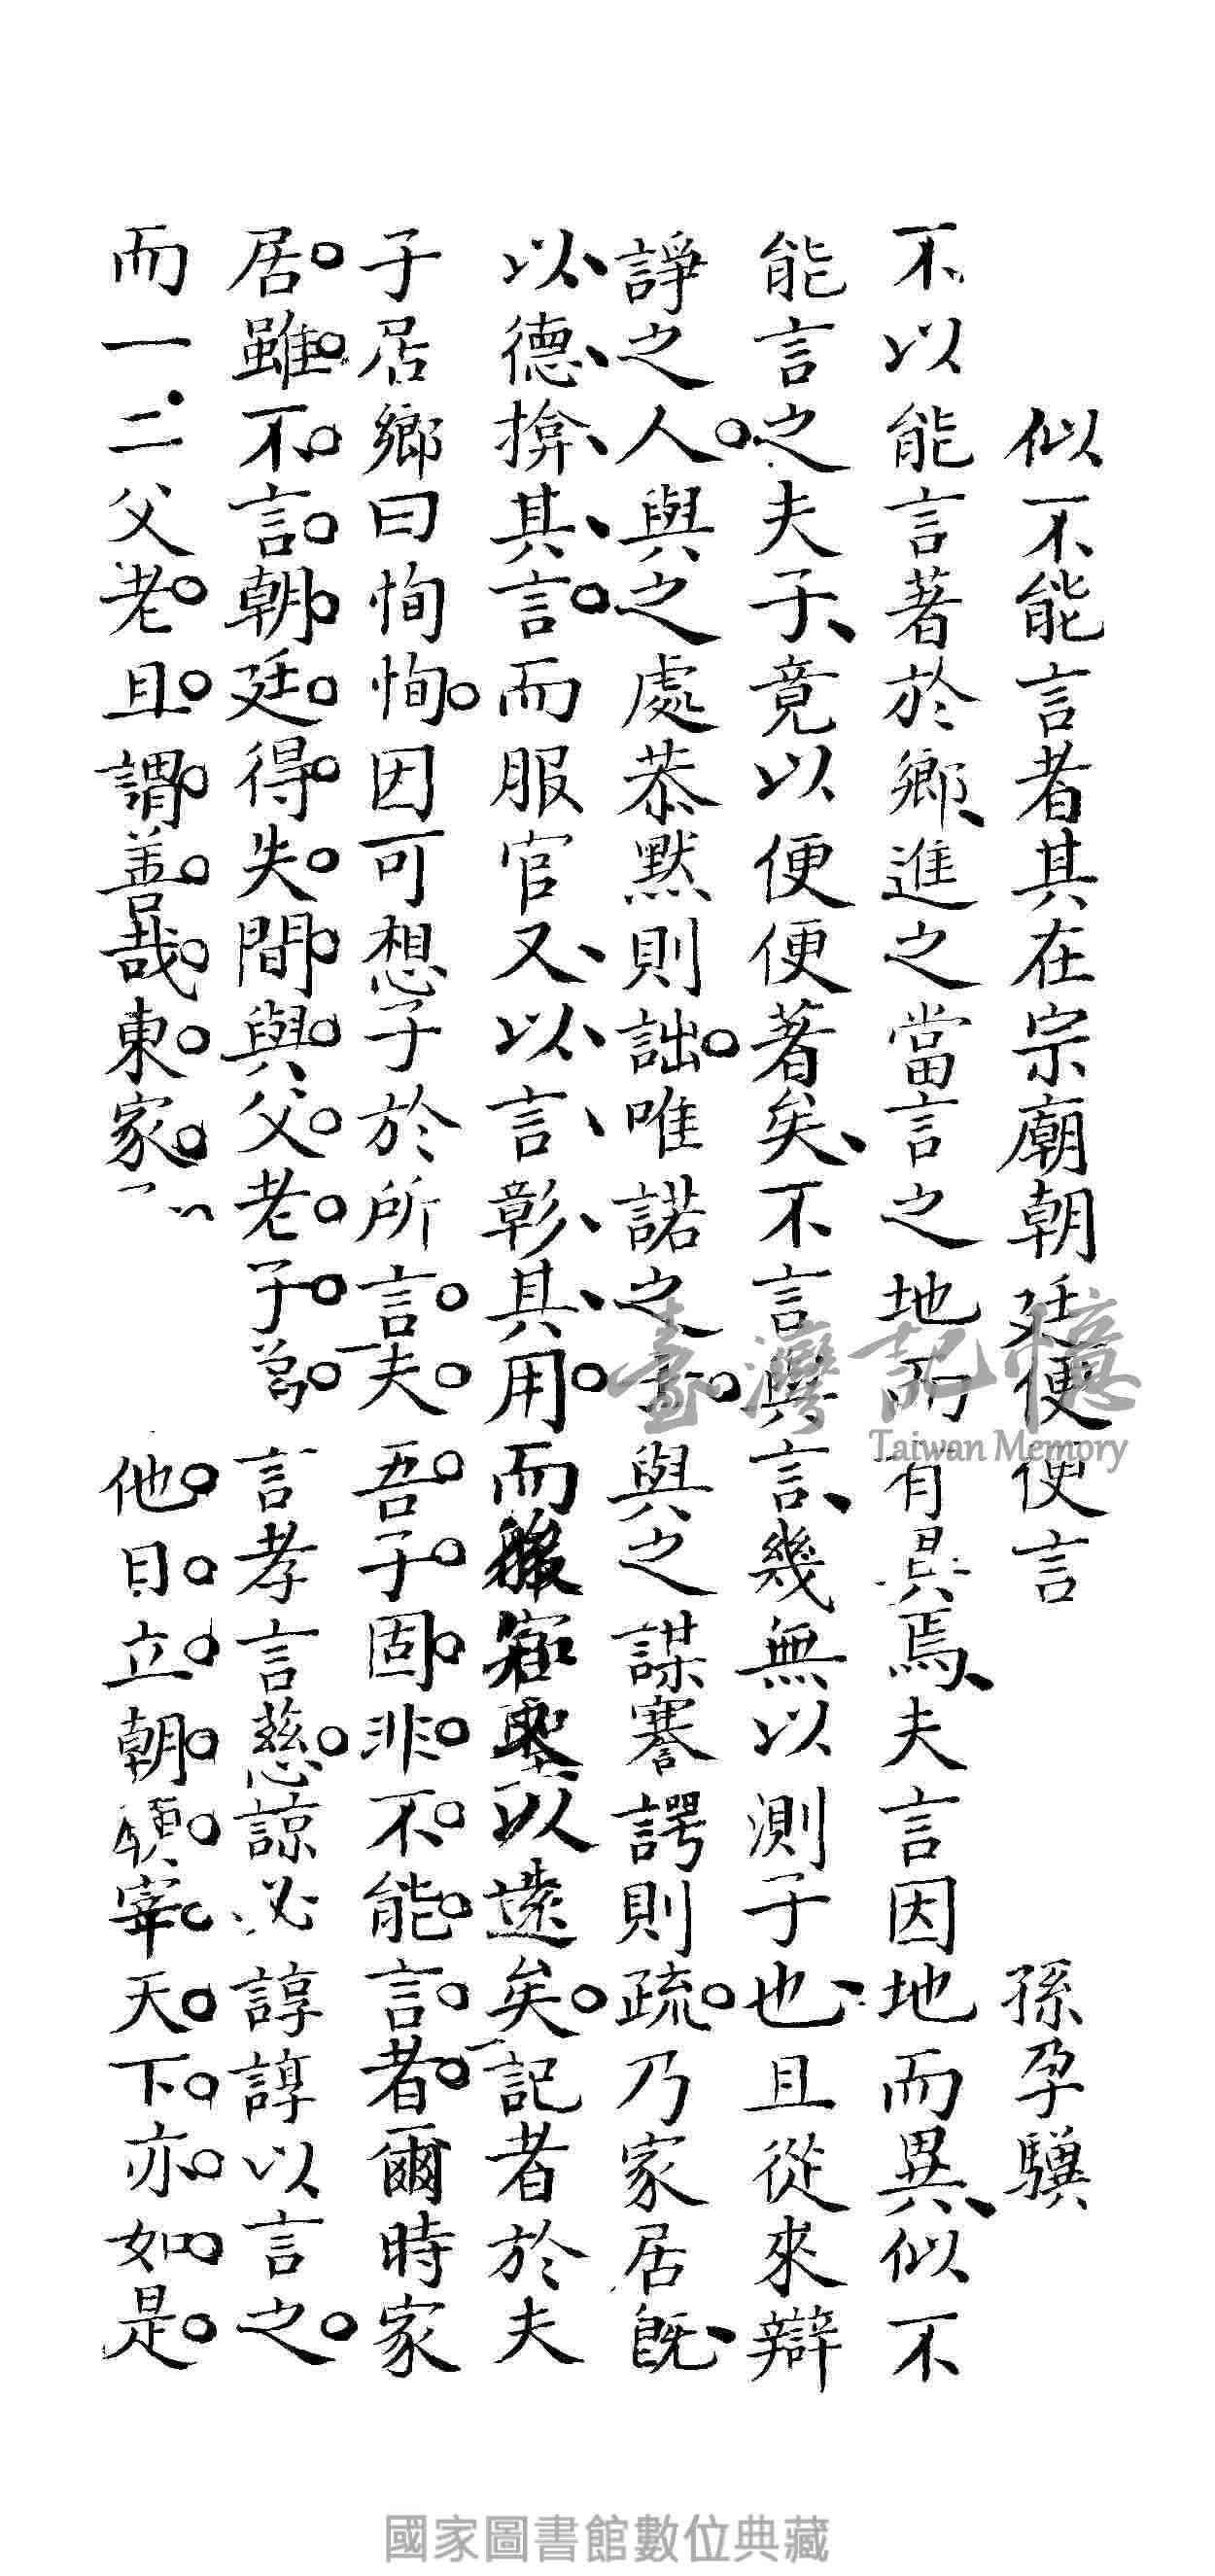 似不能言者其在宗廟朝廷便便言 孫孕驥
不以能言著於鄉進之當言之地而有異焉夫言因地而異似不
能言之夫子竟以便便著矣不言與言幾無以測子也且從來辯
諍之人與之處恭默則詘唯諾之與之謀謇諤則疏乃家居既
以德揜其言而服官又以言彰其用而以遠矣記者於夫
子居鄉曰恂恂因可想子於所言夫吾子固非不能言者爾時家
居雖不言朝廷得失間與父老子言孝言慈諒必諄諄以言之
而一二父老且謂善哉東家他日立朝宰天下亦如是
臺灣記憶
Taiwan Memory
國家圖書館數位典藏